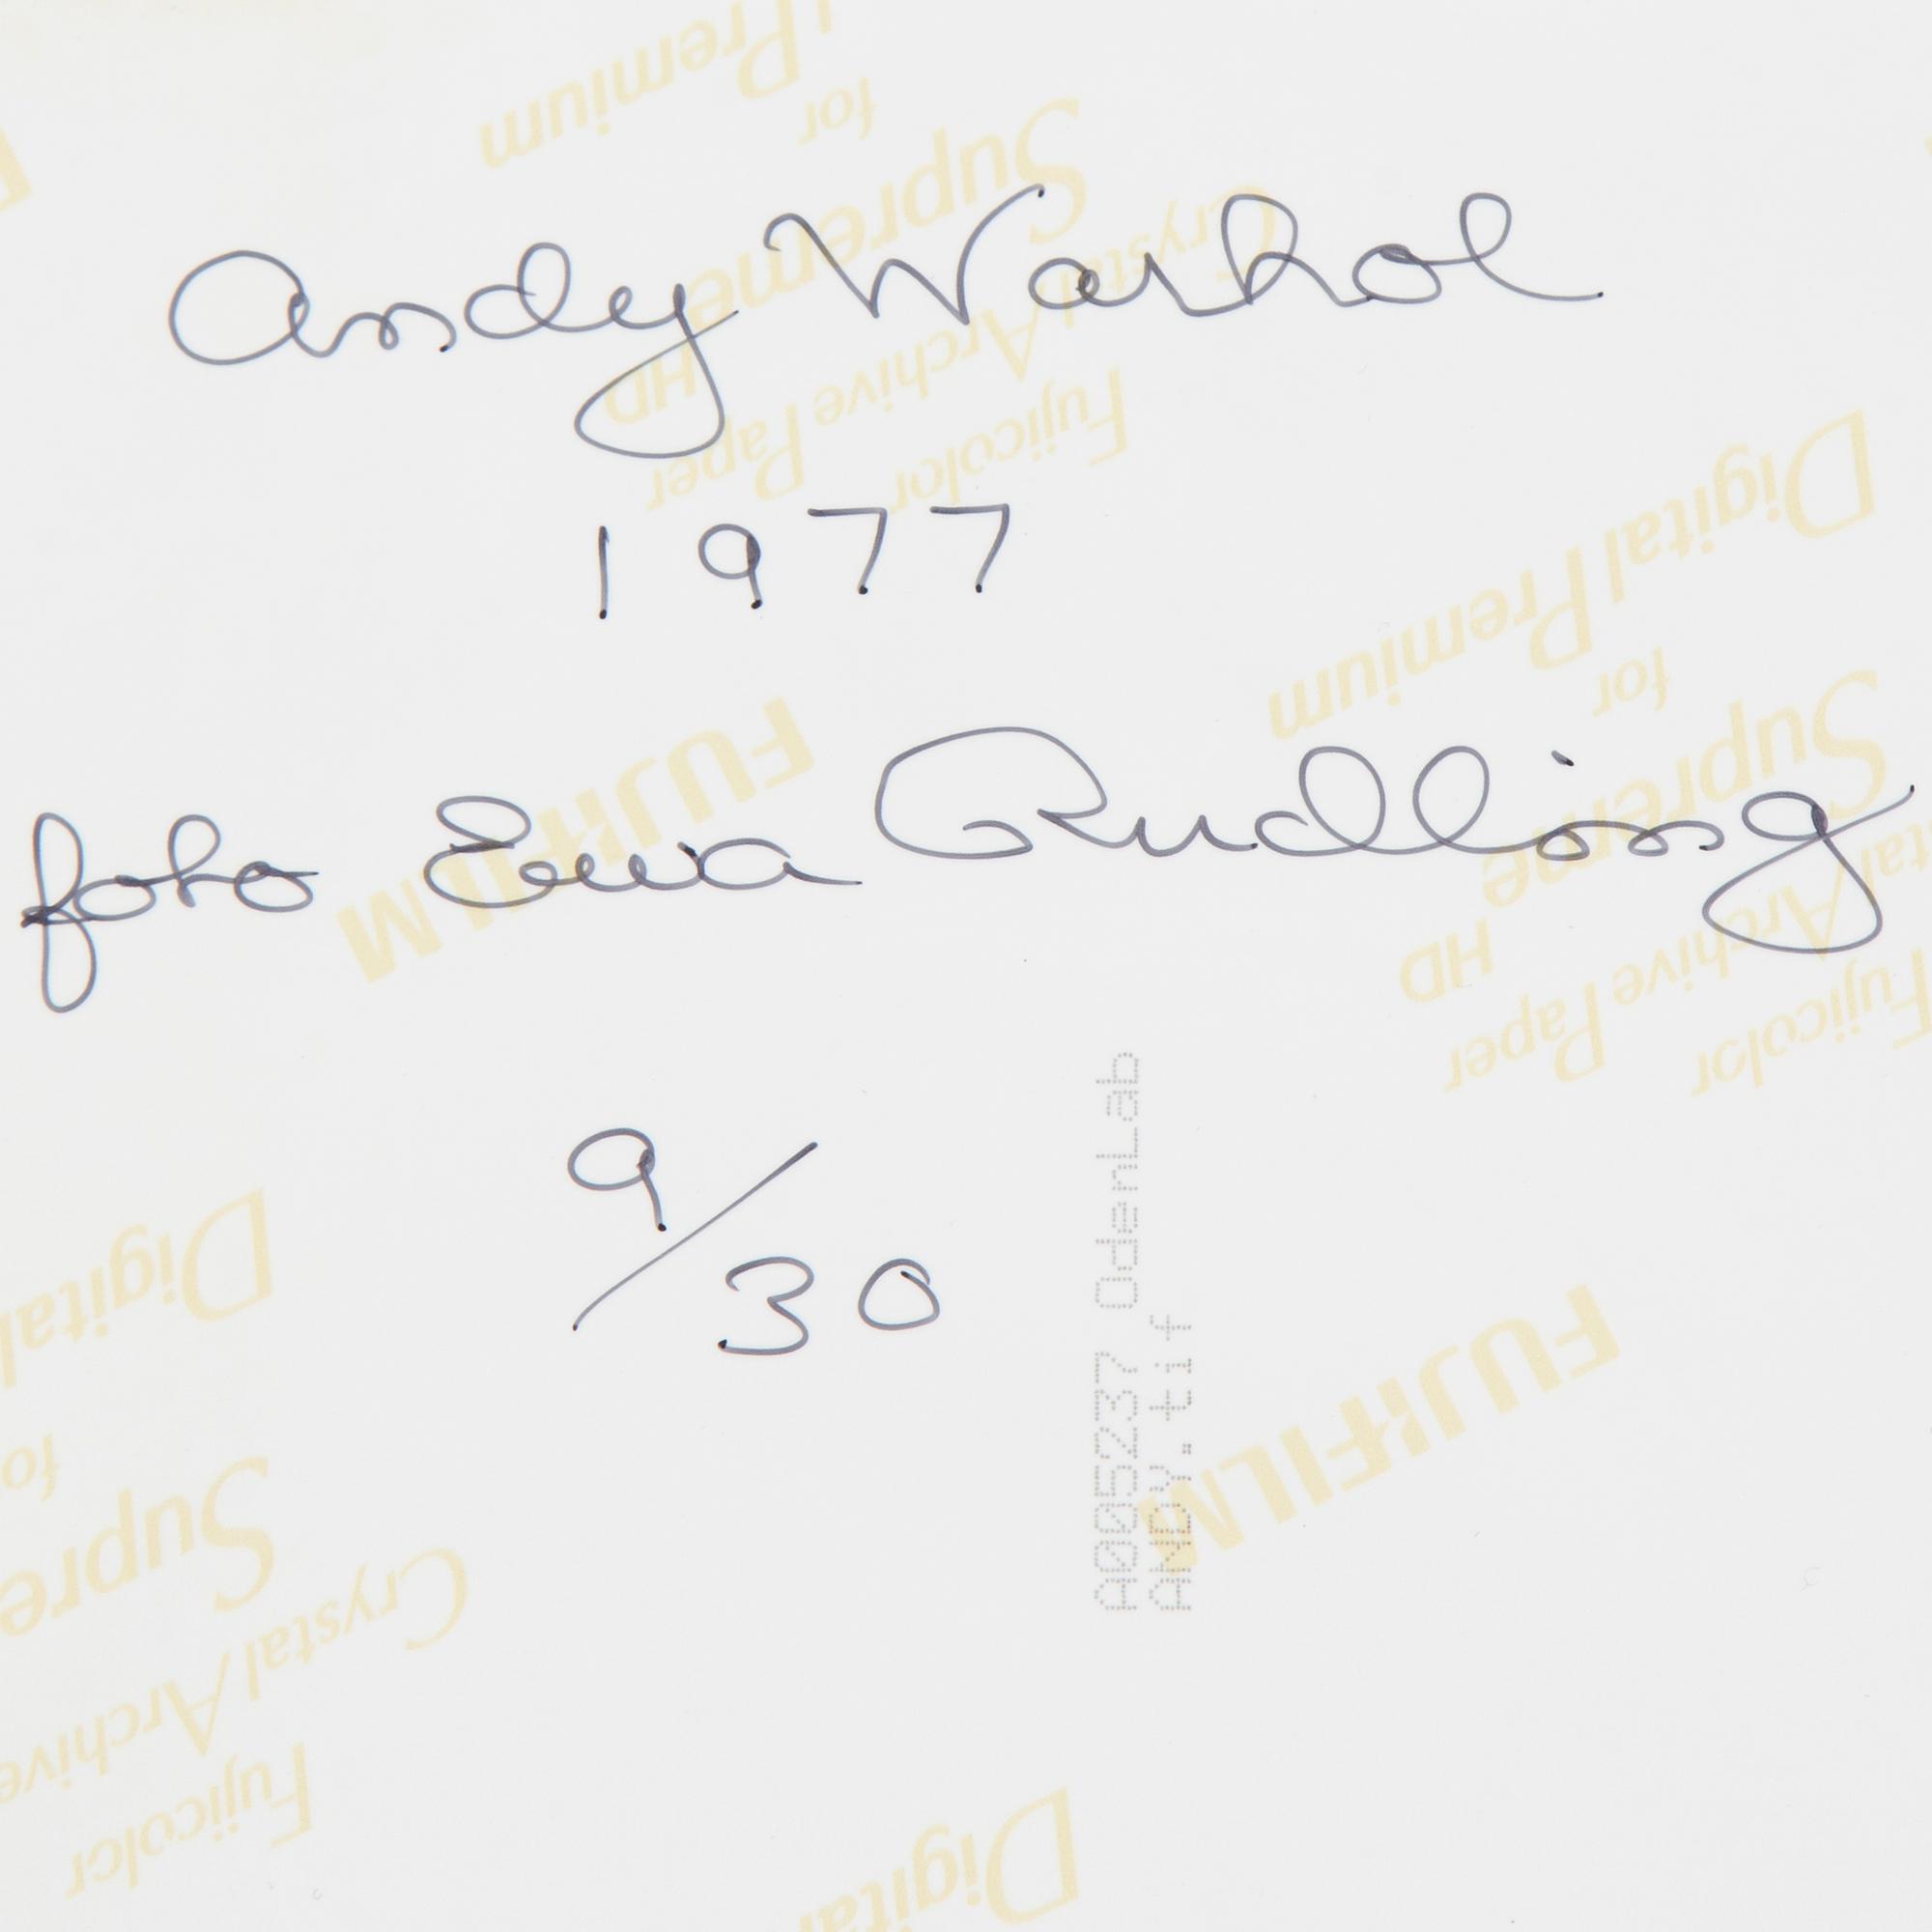 Andy Warhol
1977
foto Ewa Rudling
9/30
A005237 OdenLab
ANDY.tif
Premium
for
Supreme
HD
Crystal Archive Paper
Fujicolor
Digital Premium
for
Supreme
HD
Archive Paper
Fujicolor
FUJIFILM
FUJIFILM
Digital
for
Supre
Crystal Archive
Fujicolor
Digital